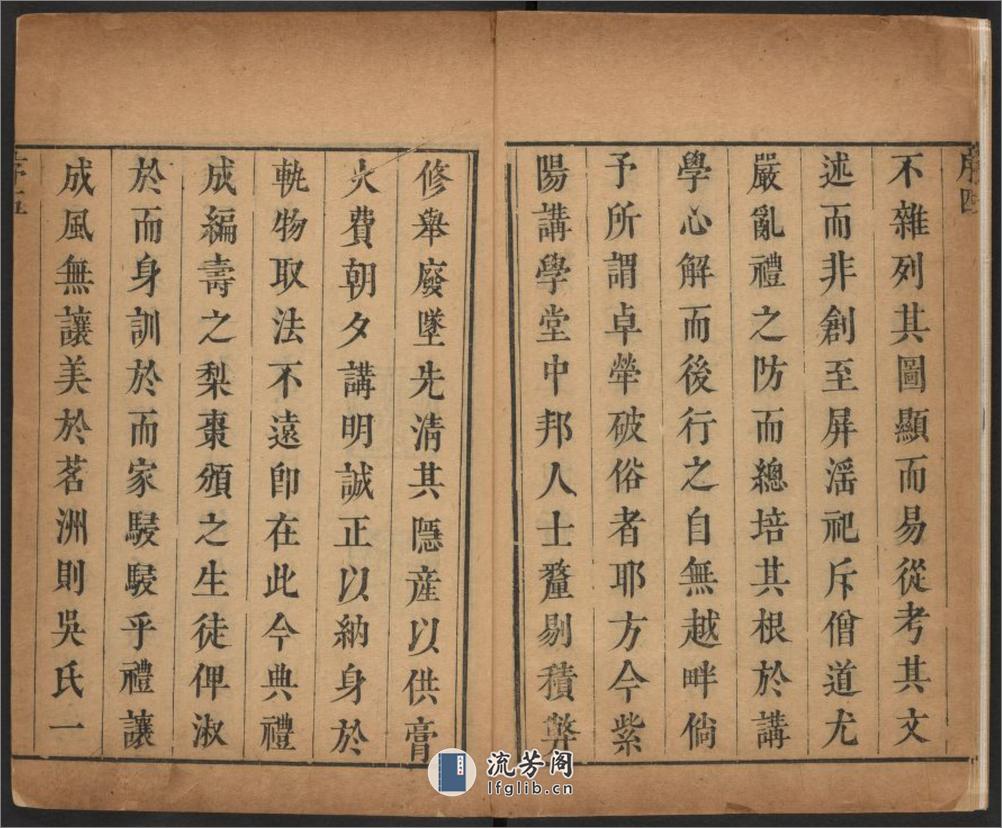 序四
不雜列其圖顯而易從考其文
述而非創至屏滛祀斥僧道尤
嚴亂禮之防而總培其根於講
學心解而後行之自無越畔倘
予所謂卓犖破俗者耶方今紫
陽講學堂中邦人士釐剔積弊
修舉廢墜先清其隱產以供膏
火費朝夕講明誠正以納身於
軌物取法不遠卽在此今典禮
成編壽之梨棗頒之生徒俾淑
於而身訓於而家駸駸乎禮讓
成風無讓美於茗洲則吳氏一
序五
流芳阁
lfglib.cn